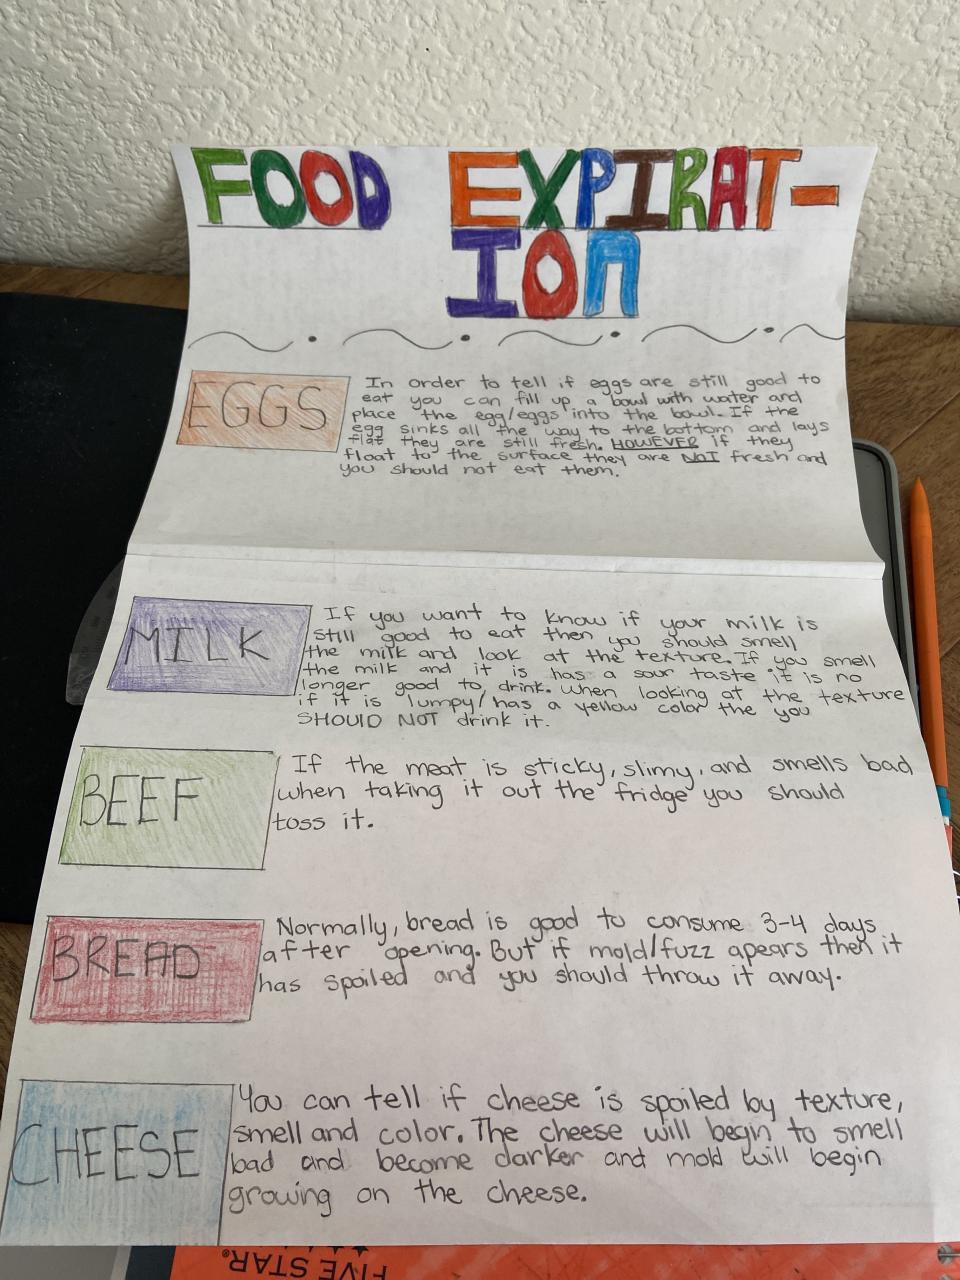 FOOD EXPIRAT-
ION
EGGS
In order to tell if eggs are still good to
eat you can fill up a bowl with water and
place the egg/eggs into the bowl. If the
egg sinks all the way to the bottom and lays
flat they are still fresh. HOWEVER if they
float to the surface they are NOT fresh and
you should not eat them.
MILK
If you want to know if your milk is
still good to eat then you should smell
the milk and look at the texture. If you smell
the milk and it is has a sour taste it is no
longer good to drink. When looking at the texture
if it is lumpy/has a yellow color the you
SHOULD NOT drink it.
BEEF
If the meat is sticky, slimy, and smells bad
when taking it out the fridge you should
toss it.
BREAD
Normally, bread is good to consume 3-4 days
after opening. But if mold/fuzz apears then it
has spoiled and you should throw it away.
CHEESE
You can tell if cheese is spoiled by texture,
smell and color. The cheese will begin to smell
bad and become darker and mold will begin
growing on the cheese.
FIVE STAR®